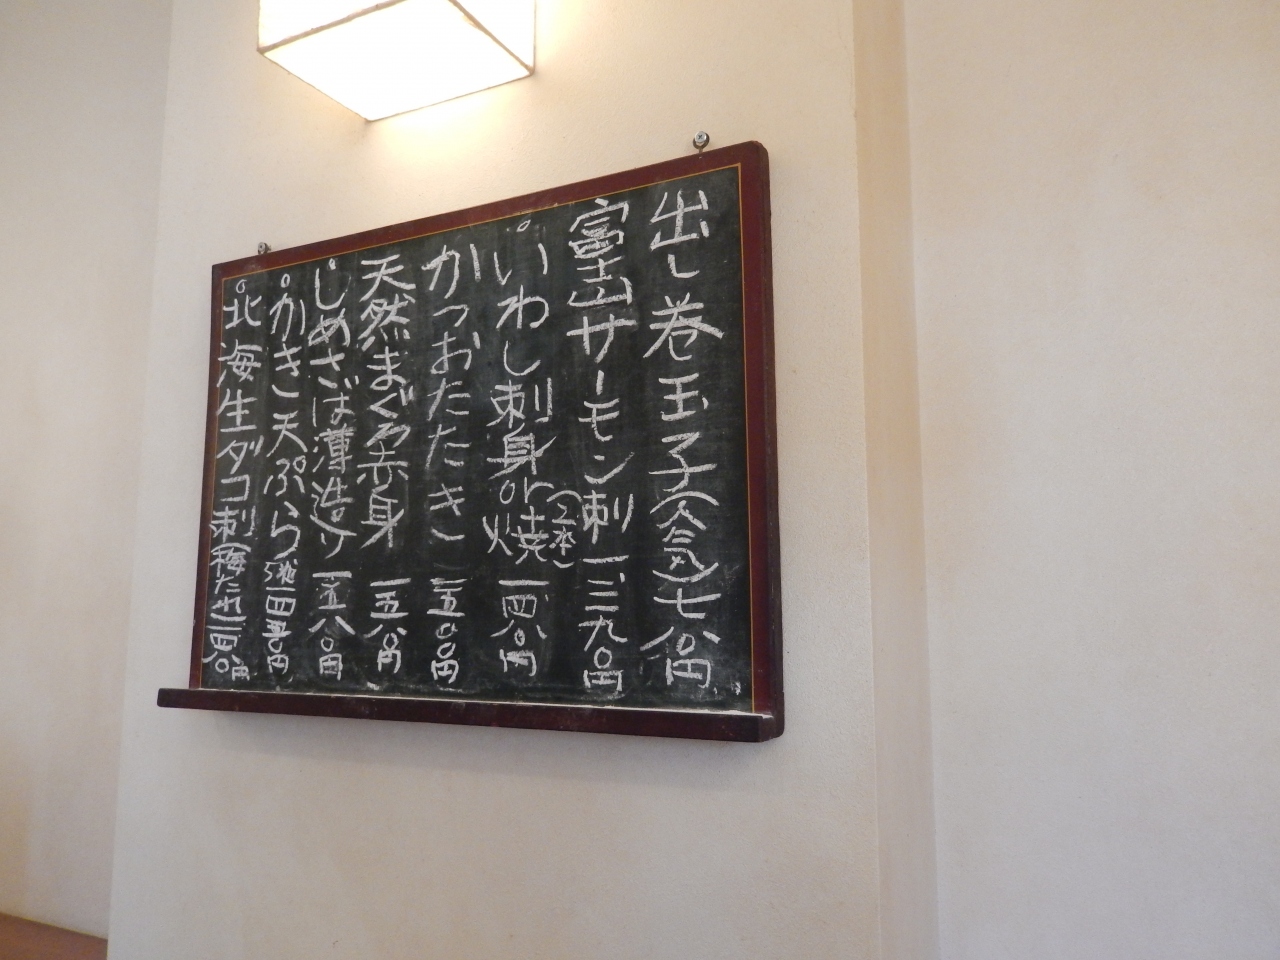 出し巻玉子(人気)七八〇円
富士山サーモン刺一、三九〇円
°いわし刺身or焼(2本)一四八〇円
かつおたたき 一五〇〇円
天然まぐろ赤身 一五八〇円
じめさば薄造り 一五八〇円
°かき天ぷら 一四五〇円
°北海生ダコ刺(梅たれ)一四八〇円